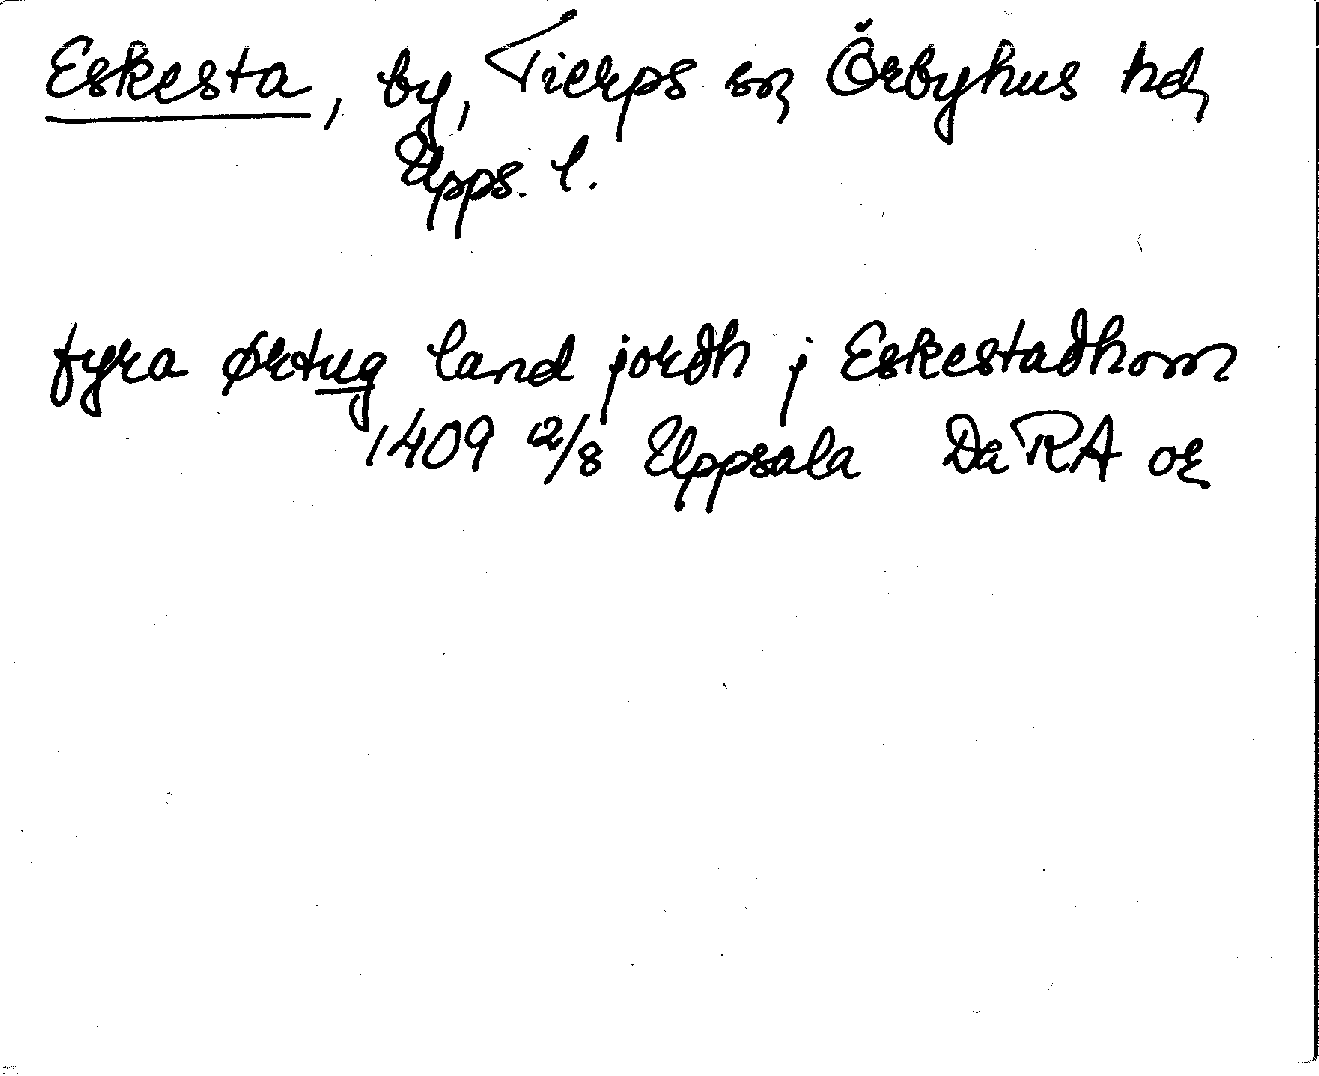 Eskesta, by, Tierps sn, Örbyhus hd,
Upps. l.
fyra ørtug land jordh j Eskestadhom
1409 12/8 Uppsala Da RA or